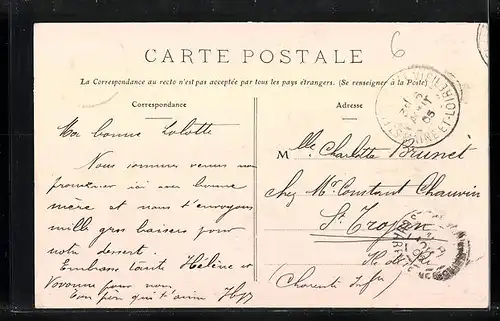 6
CARTE POSTALE
La Correspondance au recto n'est pas acceptée par tous les pays étrangers. (Se renseigner à la Poste)
Correspondance
Adresse
Ma bonne Lolotte
Nous sommes venus nous
promener ici avec bonne
mère et nous t'envoyons
mille gros baisers pour
notre dessert
Embrasse tante Hélène et
Vovonne pour nous
Ton père qui t'aime
Mlle Charlotte Brunet
chez Mr Constant Chauvin
St Trojan
(Charente Infre)